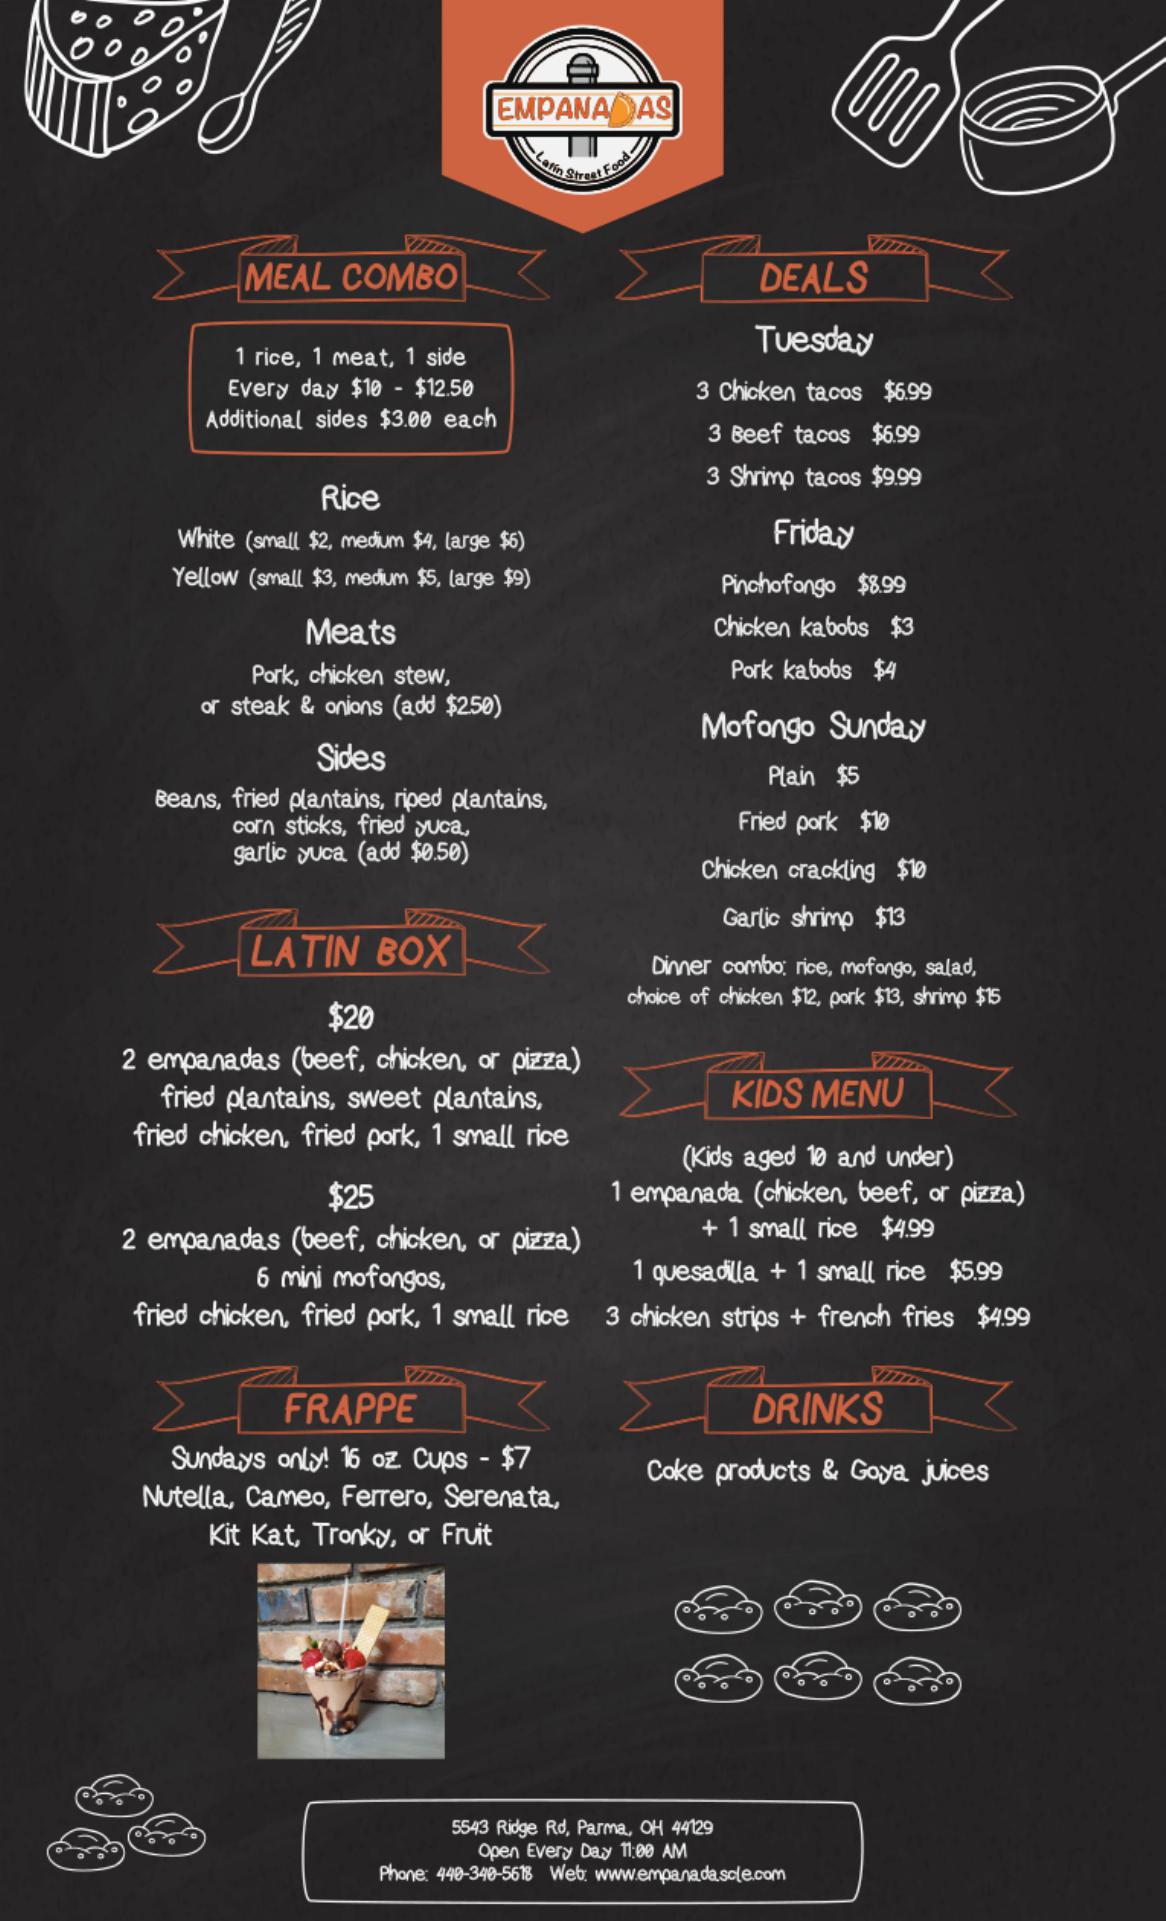 EMPANADAS
Latin Street Food
MEAL COMBO
1 rice, 1 meat, 1 side
Every day $10 - $12.50
Additional sides $3.00 each
Rice
White (small $2, medium $4, large $6)
Yellow (small $3, medium $5, large $9)
Meats
Pork, chicken stew,
or steak & onions (add $2.50)
Sides
Beans, fried plantains, riped plantains,
corn sticks, fried yuca,
garlic yuca (add $0.50)
LATIN BOX
$20
2 empanadas (beef, chicken, or pizza)
fried plantains, sweet plantains,
fried chicken, fried pork, 1 small rice
$25
2 empanadas (beef, chicken, or pizza)
6 mini mofongos,
fried chicken, fried pork, 1 small rice
FRAPPE
Sundays only! 16 oz. Cups - $7
Nutella, Cameo, Ferrero, Serenata,
Kit Kat, Tronky, or Fruit
DEALS
Tuesday
3 Chicken tacos $6.99
3 Beef tacos $6.99
3 Shrimp tacos $9.99
Friday
Pinchofongo $8.99
Chicken kabobs $3
Pork kabobs $4
Mofongo Sunday
Plain $5
Fried pork $10
Chicken crackling $10
Garlic shrimp $13
Dinner combo: rice, mofongo, salad,
choice of chicken $12, pork $13, shrimp $15
KIDS MENU
(Kids aged 10 and under)
1 empanada (chicken, beef, or pizza)
+ 1 small rice $4.99
1 quesadilla + 1 small rice $5.99
3 chicken strips + french fries $4.99
DRINKS
Coke products & Goya juices
5543 Ridge Rd, Parma, OH 44129
Open Every Day 11:00 AM
Phone: 440-340-5618 Web: www.empanadascle.com